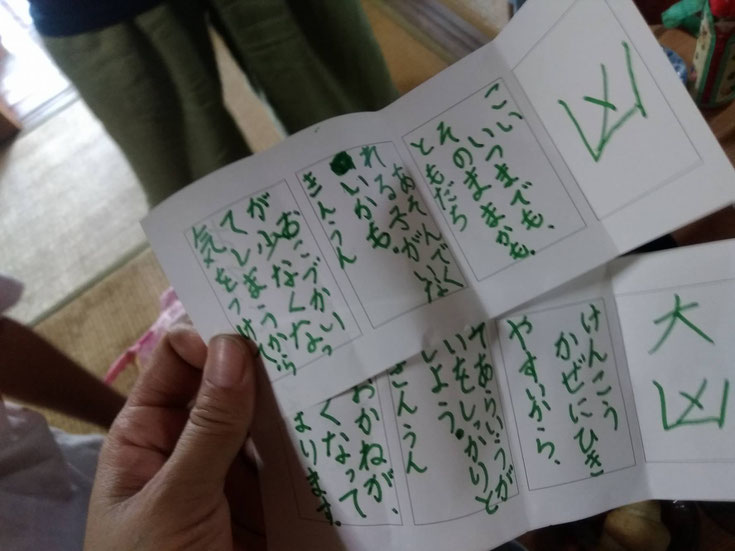 凶
こいつまでも、
そのままかも。
ともだち
あそんでく
れる子がいな
いかも。
きんうん
おこづかい
が少なくなっ
てしまうから
気をつけて
大凶
けんこう
かぜにひき
やすいから、
てあらいうが
いをしっかりと
しよう。
きんうん
おかねが、
くなって
まります。